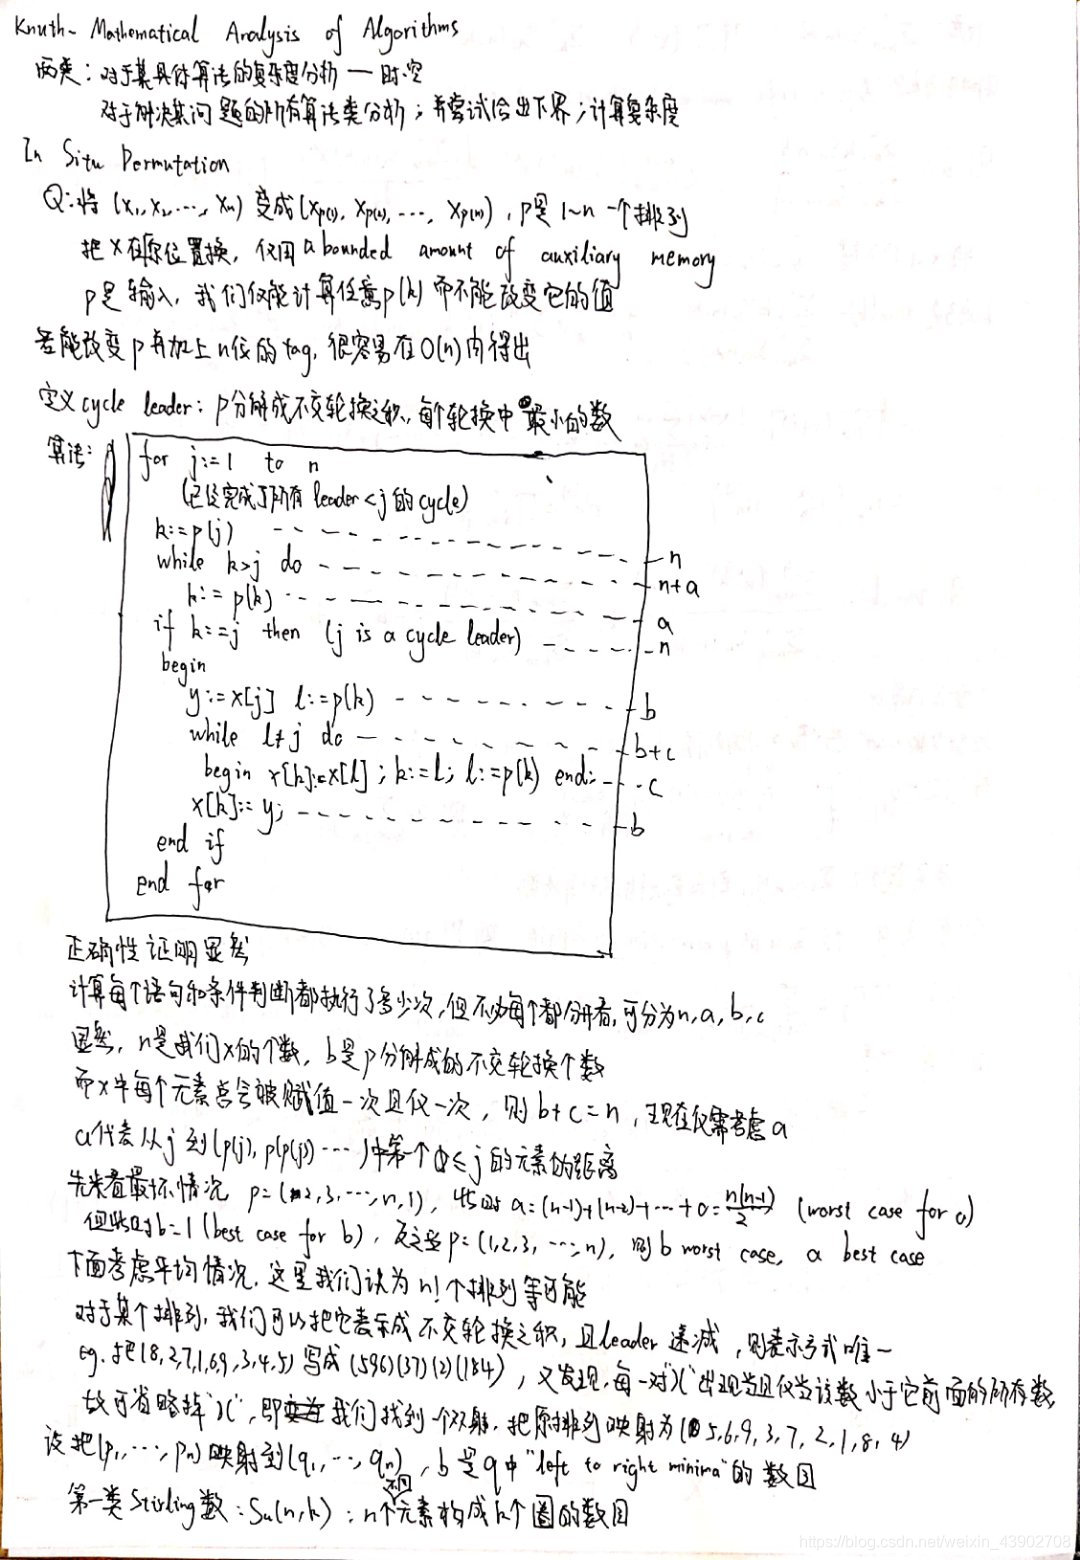 Knuth - Mathematical Analysis of Algorithms
两类：对于某具体算法的复杂度分析 — 时.空
对于解决某问题的所有算法类分析；并尝试给出下界；计算复杂度
In Situ Permutation
Q：将 (x₁, x₂, ..., xₙ) 变成 (x_{p(1)}, x_{p(2)}, ..., x_{p(n)})，p是 1~n 一个排列
把 x 在原位置换，仅用 a bounded amount of auxiliary memory
p是输入，我们仅能计算任意 p(k) 而不能改变它的值
若能改变 p 再加上 n位的 tag, 很容易在 O(n) 内得出
定义 cycle leader：p分解成不交轮换之积，每个轮换中最小的数
算法：
for j:=1 to n
(已经完成了所有 leader<j 的 cycle)
k:=p(j) n
while k>j do n+a
k:=p(k) a
if k:=j then (j is a cycle leader) n
begin
y:=x[j] l:=p(k) b
while l≠j do b+c
begin x[k]:=x[l]; k:=l; l:=p(k) end; c
x[k]:=y; b
end if
end for
正确性证明显然
计算每个语句和条件判断都执行了多少次，但不必每个都分开看，可分为 n, a, b, c
显然，n是我们x的个数，b是p分解成的不交轮换个数
而x中每个元素总会被赋值一次且仅一次，则 b+c=n，现在仅需考虑a
a代表从j到(p(j), p(p(j)) ...)中第一个≤j的元素的距离
先来看最坏情况 p=(2,3,...,n,1)，此时 a=(n-1)+(n-2)+...+0=n(n-1)/2 (worst case for a)
但此时 b=1 (best case for b)，反之 p=(1,2,3,...,n)，则 b worst case, a best case
下面考虑平均情况，这里我们认为 n! 个排列等可能
对于某个排列，我们可以把它表示成不交轮换之积，且 leader 递减，则表示方式唯一
eg. 把(8,2,7,1,6,9,3,4,5) 写成 (596)(37)(2)(184)，又发现，每一对")(" 出现当且仅当该数小于它前面的所有数
故可省略掉")("，即我们找到一个双射，把原排列映射为(5,6,9,3,7,2,1,8,4)
该把(p₁,...,pₙ)映射到(q₁,...,qₙ)，b是q中"left to right minima"的数目
第一类Stirling数：Su(n,k)：n个不同元素构成k个圈的数目
https://blog.csdn.net/weixin_43902708